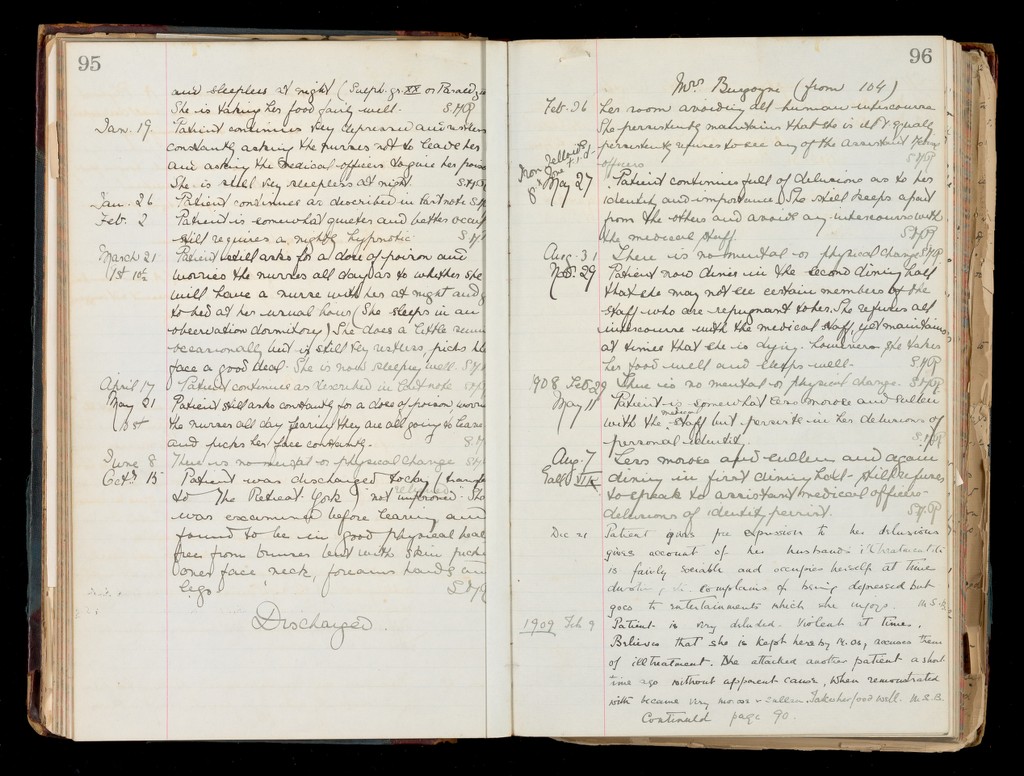 95
and sleepless at night (Sulph. gr. XX or Parald
She is taking her food fairly well. S.H.P.
Jan. 19. Patient continues very depressed and restless
constantly asking the nurses not to leave her
and asking the medical officers to give her poison
She is still very sleepless at night. S.H.P.
Jan. 26 Patient continues as described in last note S.H.P.
Feb. 2 Patient is somewhat quieter and better
still requires a nightly hypnotic S.H.P.
March 21 Patient still asks for a dose of poison and
worries the nurses all day as to whether she
will have a nurse with her at night and
to bed at her usual hour (She sleeps in an
observation dormitory) She does a little
occasionally but is still very restless, picks her
face a good deal. She is now sleeping well. S.H.P.
April 17 Patient continues as described in last note S.H.P.
May 21 Patient still asks constantly for a dose of poison,
the nurses all day fearing they are all going to leave
and picks her face constantly. S.H.
June 8 There is no mental or physical change S.H.
Oct. 15 Patient was discharged today
to "The Retreat York" "not improved". She
was examined before leaving and
found to be in good physical
free from bruises but with skin
over face, neck, forearms hands
legs. S.H.P.
Discharged
96
Mrs Burgoyne (from 104)
Feb. 26 her room avoiding all human intercourse
She persistently maintains that she is
persistently refuses to see any of the assistant
officers S.H.P.
May 27 Patient continues full of delusions as to her
identity and importance. She still keeps apart
from the others and avoids any intercourse with
the medical staff. S.H.P.
Aug. 31 There is no mental or physical change S.H.P.
Nov. 29 Patient now dines in the second dining hall
that she may not see certain members of the
staff who are repugnant to her. She refuses all
intercourse with the medical staff, yet maintains
at times that she is dying. However she takes
her food well and sleeps well. S.H.P.
1908 Feb. 29 There is no mental or physical change. S.H.P.
May 11 Patient is somewhat less morose and sullen
with the medical staff but persists in her delusions of
personal identity. S.H.P.
Aug. 7 Less morose and sullen and again
dining in first dining hall - still refuses
to speak to assistant medical officers -
delusions of identity persist. S.H.P.
Dec 21 Patient gives free expression to her delusions
gives account of her husband's illtreatment
is fairly sociable and occupies herself at time
complains of being depressed but
goes to entertainments which she enjoys. M.S.B.
1909 Feb 9 Patient is very deluded. Violent at times.
Believes that she is kept here by M.Os, accuses them
of illtreatment. She attacked another patient a short
time ago without apparent cause, when remonstrated
with became very morose & sullen. Takes her food well. M.S.B.
Continued page 90.